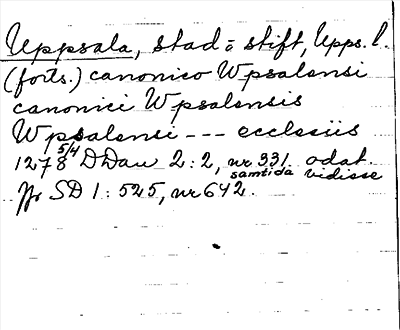 Uppsala, stad o stift, Upps. l.
(forts.) canonico Wpsalensi
canonici Wpsalensis
Wpsalensi --- ecclesiis
1278 5/4 DDan 2:2, nr 331. odat. samtida vidisse
Jfr SD 1:525, nr 642.